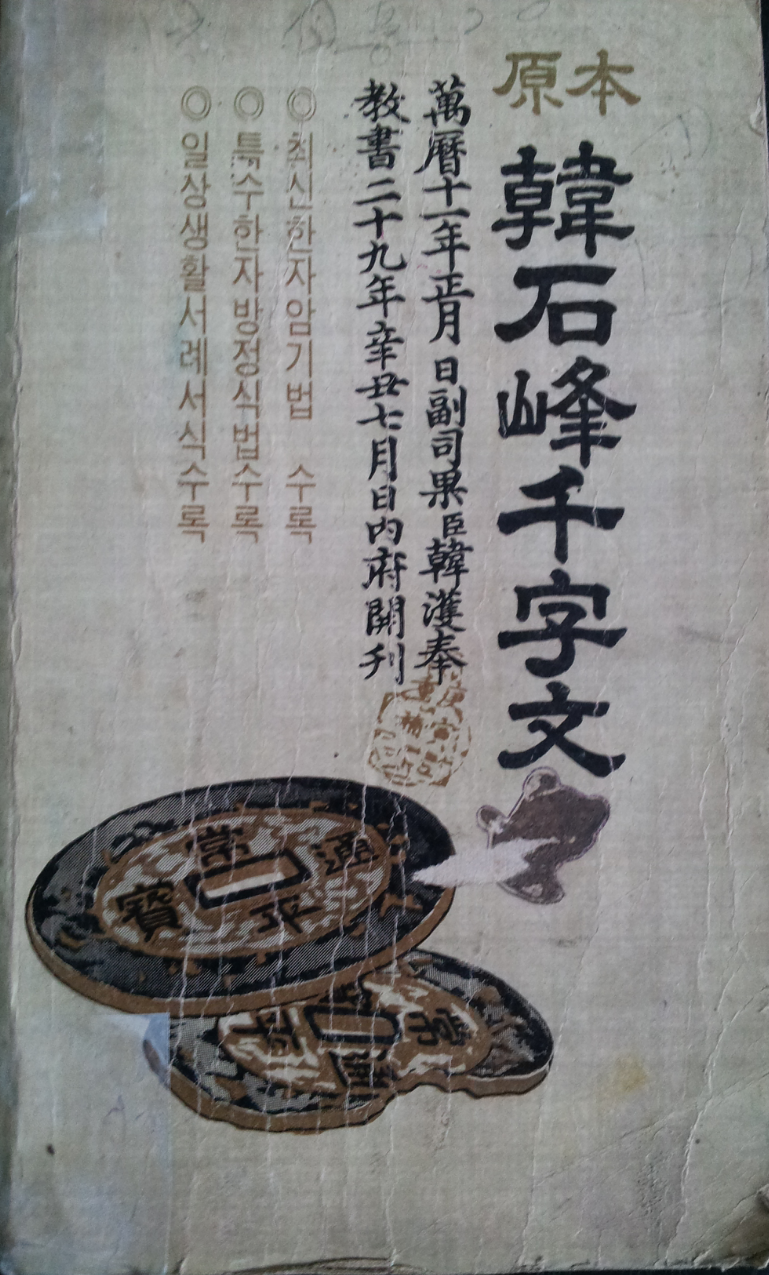 原本
韓石峰千字文
萬曆十一年正月 日副司果臣韓濩奉
教書二十九年辛丑七月日內府開刊
◎ 최신한자암기법 수록
◎ 특수한자방정식법수록
◎ 일상생활서례서식수록
常平通寶
常平通